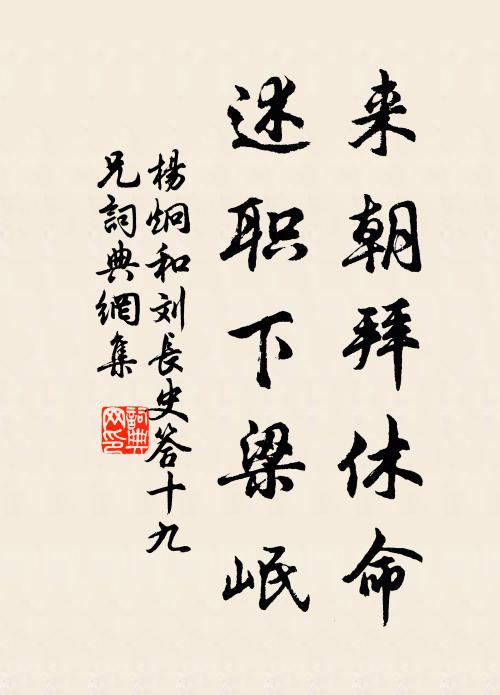 来朝拜休命
述职下梁岷
杨炯和刘长史答十九
兄詞典網集
詞典網印